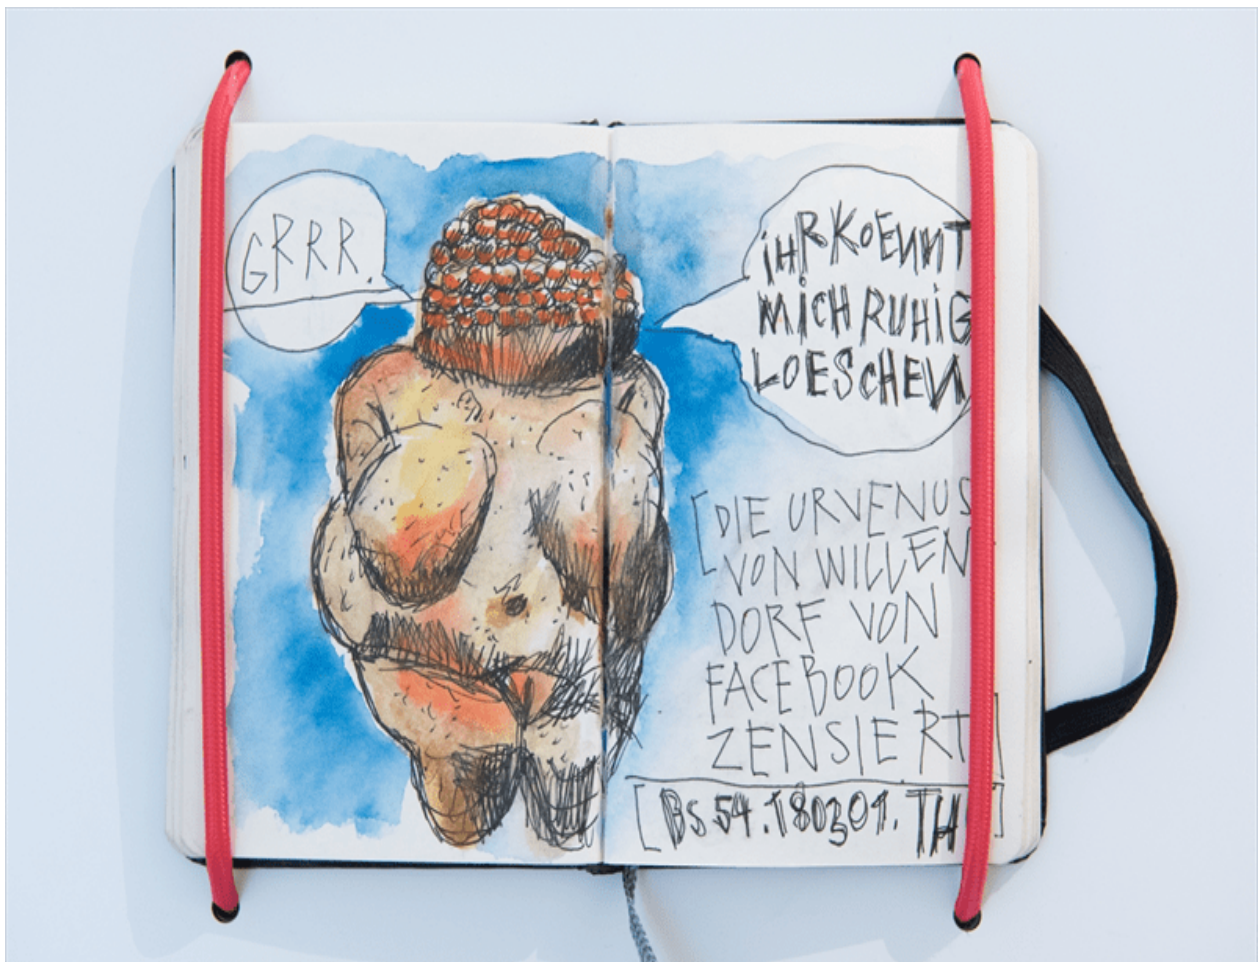 GRRR.
iHR KOENNT
MiCH RUHiG
LOESCHEN
[DIE URVENUS
VON WILLEN
DORF VON
FACEBOOK
ZENSIERT]
[BS 54.180301.TH]